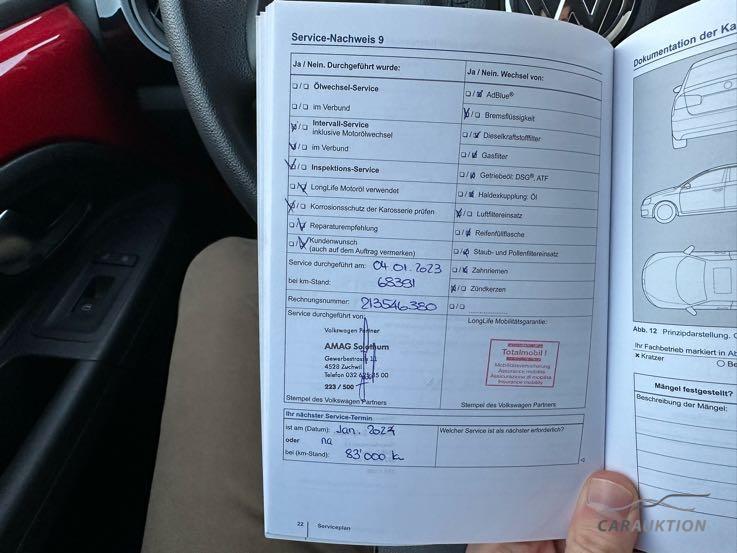 Service-Nachweis 9
Ja / Nein. Durchgeführt wurde:
Ölwechsel-Service
im Verbund
Intervall-Service
inklusive Motorölwechsel
im Verbund
Inspektions-Service
LongLife Motoröl verwendet
Korrosionsschutz der Karosserie prüfen
Reparaturempfehlung
Kundenwunsch
(auch auf dem Auftrag vermerken)
Service durchgeführt am: 04.01.2023
bei km-Stand: 68391
Rechnungsnummer: 213546380
Service durchgeführt von:
Volkswagen Partner
AMAG Solothurn
Gewerbestrasse
4528 Zuchwil
Telefon 032
223 / 500
Stempel des Volkswagen Partners
Ja / Nein. Wechsel von:
AdBlue®
Bremsflüssigkeit
Dieselkraftstofffilter
Gasfilter
Getriebeöl: DSG®, ATF
Haldexkupplung: Öl
Luftfiltereinsatz
Reifenfüllflasche
Staub- und Pollenfiltereinsatz
Zahnriemen
Zündkerzen
LongLife Mobilitätsgarantie:
Totalmobil !
Mobilitätsversicherung
Assurance mobilité
Assicurazione di mobilità
Insurance mobility
Stempel des Volkswagen Partners
Ihr nächster Service-Termin
ist am (Datum): Jan.
oder na
bei (km-Stand): 83'000 k
Welcher Service ist als nächster erforderlich?
22
Serviceplan
Dokumentation der Ka
Abb. 12 Prinzipdarstellung.
Ihr Fachbetrieb markiert in Ab
× Kratzer
Be
Mängel festgestellt?
Beschreibung der Mängel:
CARAUKTION